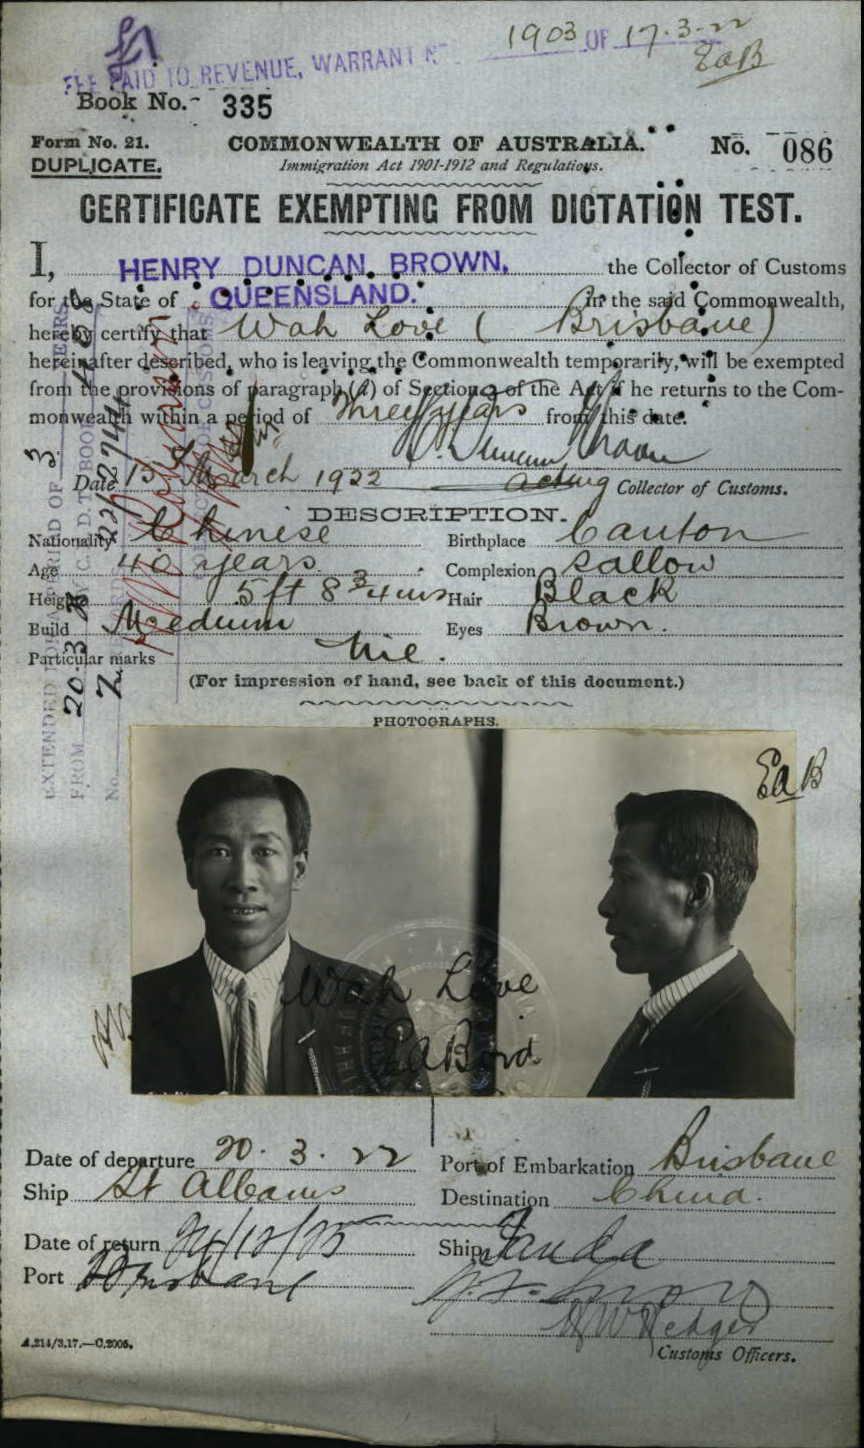 £1
FEE PAID TO REVENUE, WARRANT No 1903 OF 17.3.22
EaB
Book No. 335
Form No. 21. COMMONWEALTH OF AUSTRALIA. No. 086
DUPLICATE. Immigration Act 1901-1912 and Regulations.
CERTIFICATE EXEMPTING FROM DICTATION TEST.
I, HENRY DUNCAN BROWN, the Collector of Customs
for the State of QUEENSLAND. in the said Commonwealth,
hereby certify that Wah Love ( Brisbane )
hereinafter described, who is leaving the Commonwealth temporarily, will be exempted
from the provisions of paragraph (a) of Section 3 of the Act if he returns to the Com-
monwealth within a period of Three years from this date.
H. Duncan Brown
Date 15th March 1922 acting Collector of Customs.
DESCRIPTION.
Nationality Chinese Birthplace Canton
Age 40 years Complexion Sallow
Height 5 ft 8 3/4 ins Hair Black
Build Medium Eyes Brown.
Particular marks Nil.
(For impression of hand, see back of this document.)
PHOTOGRAPHS.
EXTENDED FOR A PERIOD OF 3 YEARS
FROM 20.3.2
No.
EaB
Wah Love
EA Bord
Date of departure 20.3.22 Port of Embarkation Brisbane
Ship St Albans Destination China.
Date of return 24/12/25 Ship Tanda
Port Brisbane
HW Hedger
Customs Officers.
A.214/3.17.—C.2005.